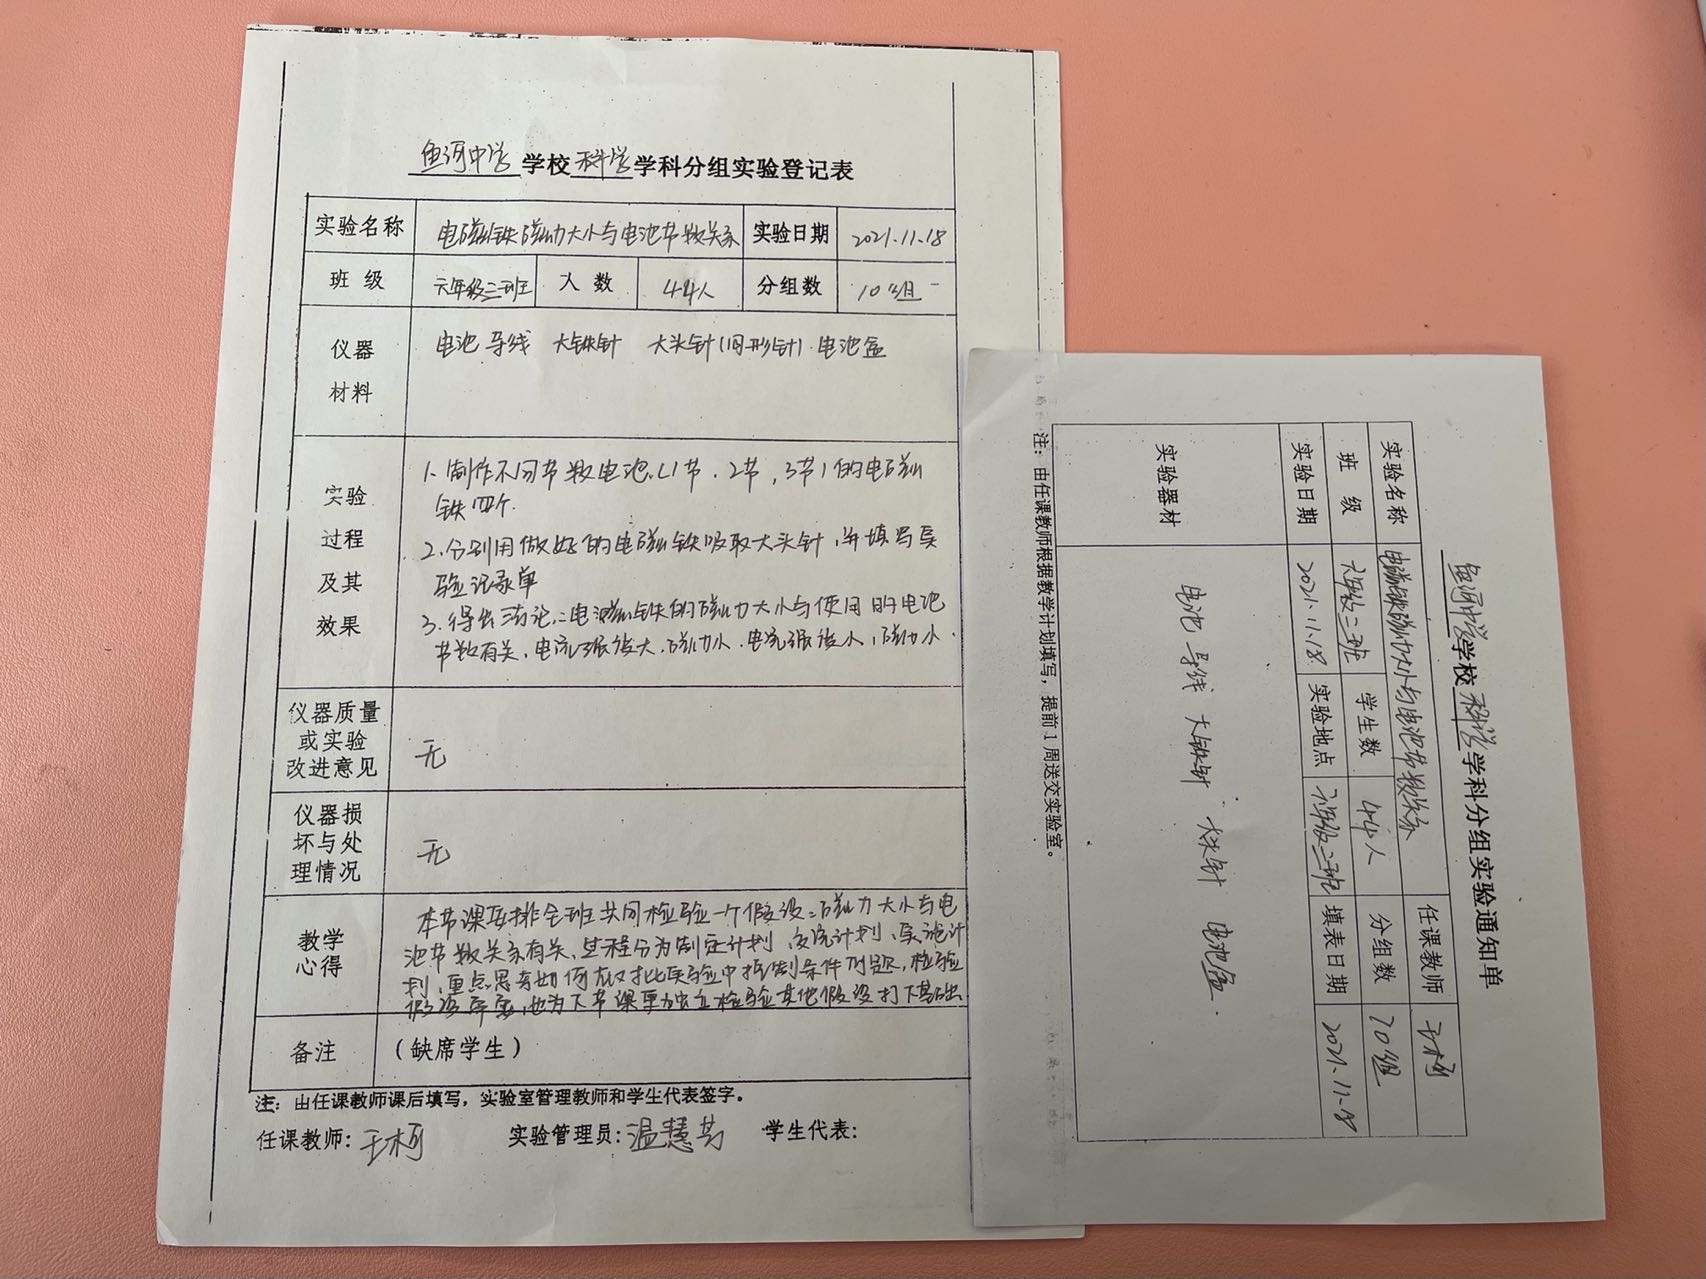 鱼河中学学校科学学科分组实验登记表
实验名称 电磁铁磁力大小与电池节数关系 实验日期 2021.11.18
班 级 六年级二班 人 数 44人 分组数 10组
仪器 电池 导线 大铁钉 大头针(回形针) 电池盒
材料
实验 1. 制作不同节数电池(1节、2节、3节)的电磁
铁四个.
过程 2.分别用做好的电磁铁吸取大头针,并填写实
及其 验记录单
效果 3.得出结论:电池磁铁的磁力大小与使用的电池
节数有关,电流强度大,磁力小.电流强度小,磁力小.
仪器质量
或实验
改进意见 无
仪器损
坏与处
理情况 无
教学 本节课安排全班共同检验一个假设:磁力大小与电
心得 池节数关系有关,过程分为制定计划,交流计划,实施计
划,重点思考如何在对比实验中控制条件问题,检验
假设 ,也为下节课更独立检验其他假设打下基础
备注 (缺席学生)
注:由任课教师课后填写,实验室管理教师和学生代表签字。
任课教师:王柯 实验管理员:温慧芳 学生代表:
鱼河中学学校科学学科分组实验通知单
实验名称 电磁铁磁力大小与电池节数关系 任课教师 王柯
班 级 六年级二班 学生数 44人 分组数 10组
实验日期 2021.11.18 实验地点 六年级二班 填表日期 2021.11.8
实验器材 电池 导线 大铁钉 大头针 电池盒.
注:由任课教师根据教学计划填写,提前1周送交实验室。